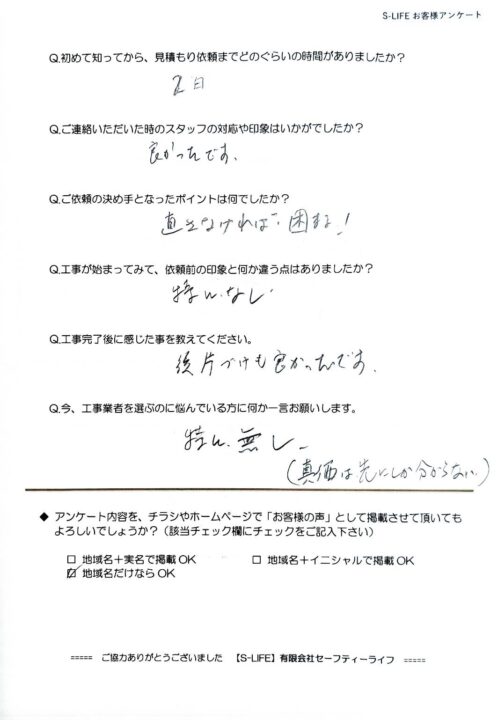 S-LIFE お客様アンケート
Q.初めて知ってから、見積もり依頼までどのぐらいの時間がありましたか?
2日
Q.ご連絡いただいた時のスタッフの対応や印象はいかがでしたか?
良かったです.
Q.ご依頼の決め手となったポイントは何でしたか?
直さなければ 困る!
Q.工事が始まってみて、依頼前の印象と何か違う点はありましたか?
特に.なし
Q.工事完了後に感じた事を教えてください。
後片づけも良かったです.
Q.今、工事業者を選ぶのに悩んでいる方に何か一言お願いします。
特に.無し.
(真価は先にしか分からない.)
◆ アンケート内容を、チラシやホームページで「お客様の声」として掲載させて頂いても
よろしいでしょうか?(該当チェック欄にチェックをご記入下さい)
□ 地域名+実名で掲載 OK □ 地域名+イニシャルで掲載 OK
☑ 地域名だけなら OK
===== ご協力ありがとうございました 【S-LIFE】有限会社セーフティーライフ =====